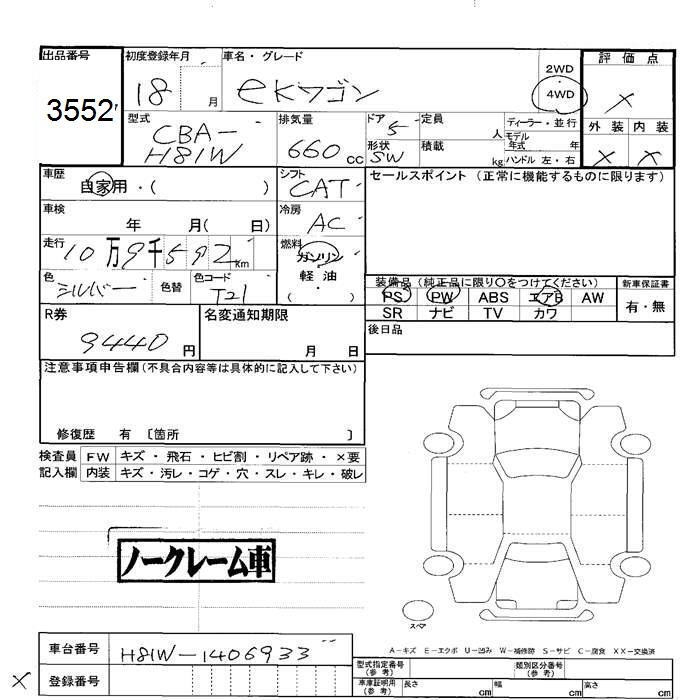 出品番号 初度登録年月 車名・グレード 評価点
3552 18 月 ekワゴン 2WD 4WD ×
型式 CBA-H81W 排気量 660cc ドア 5 定員 人 ディーラー・並行 外装 内装
形状 SW 積載 kg モデル年式 年 ハンドル 左・右 × ×
車歴 自家用・( ) シフト CAT セールスポイント (正常に機能するものに限ります)
車検 年 月( 日) 冷房 AC
走行 10万9千592Km 燃料 ガソリン 軽油 ・( )
色 シルバー 色替 色コード T21
装備品 (純正品に限り〇をつけてください) 新車保証書
PS PW ABS エアB AW 有・無
SR ナビ TV カワ
R券 9440円 名変通知期限 月 日 後日品
注意事項申告欄(不具合内容等は具体的に記入して下さい)
修復歴 有 〔箇所 〕
検査員 FW キズ・飛石・ヒビ割・リペア跡・×要
記入欄 内装 キズ・汚レ・コゲ・穴・スレ・キレ・破レ
ノークレーム車
スペア
A-キズ E-エクボ U-凹み W-補修跡 S-サビ C-腐食 XX-交換済
車台番号 H81W-1406933 型式指定番号(参考) 類別区分番号(参考)
× 登録番号 車庫証明用(参考) 長さ cm 幅 cm 高さ cm